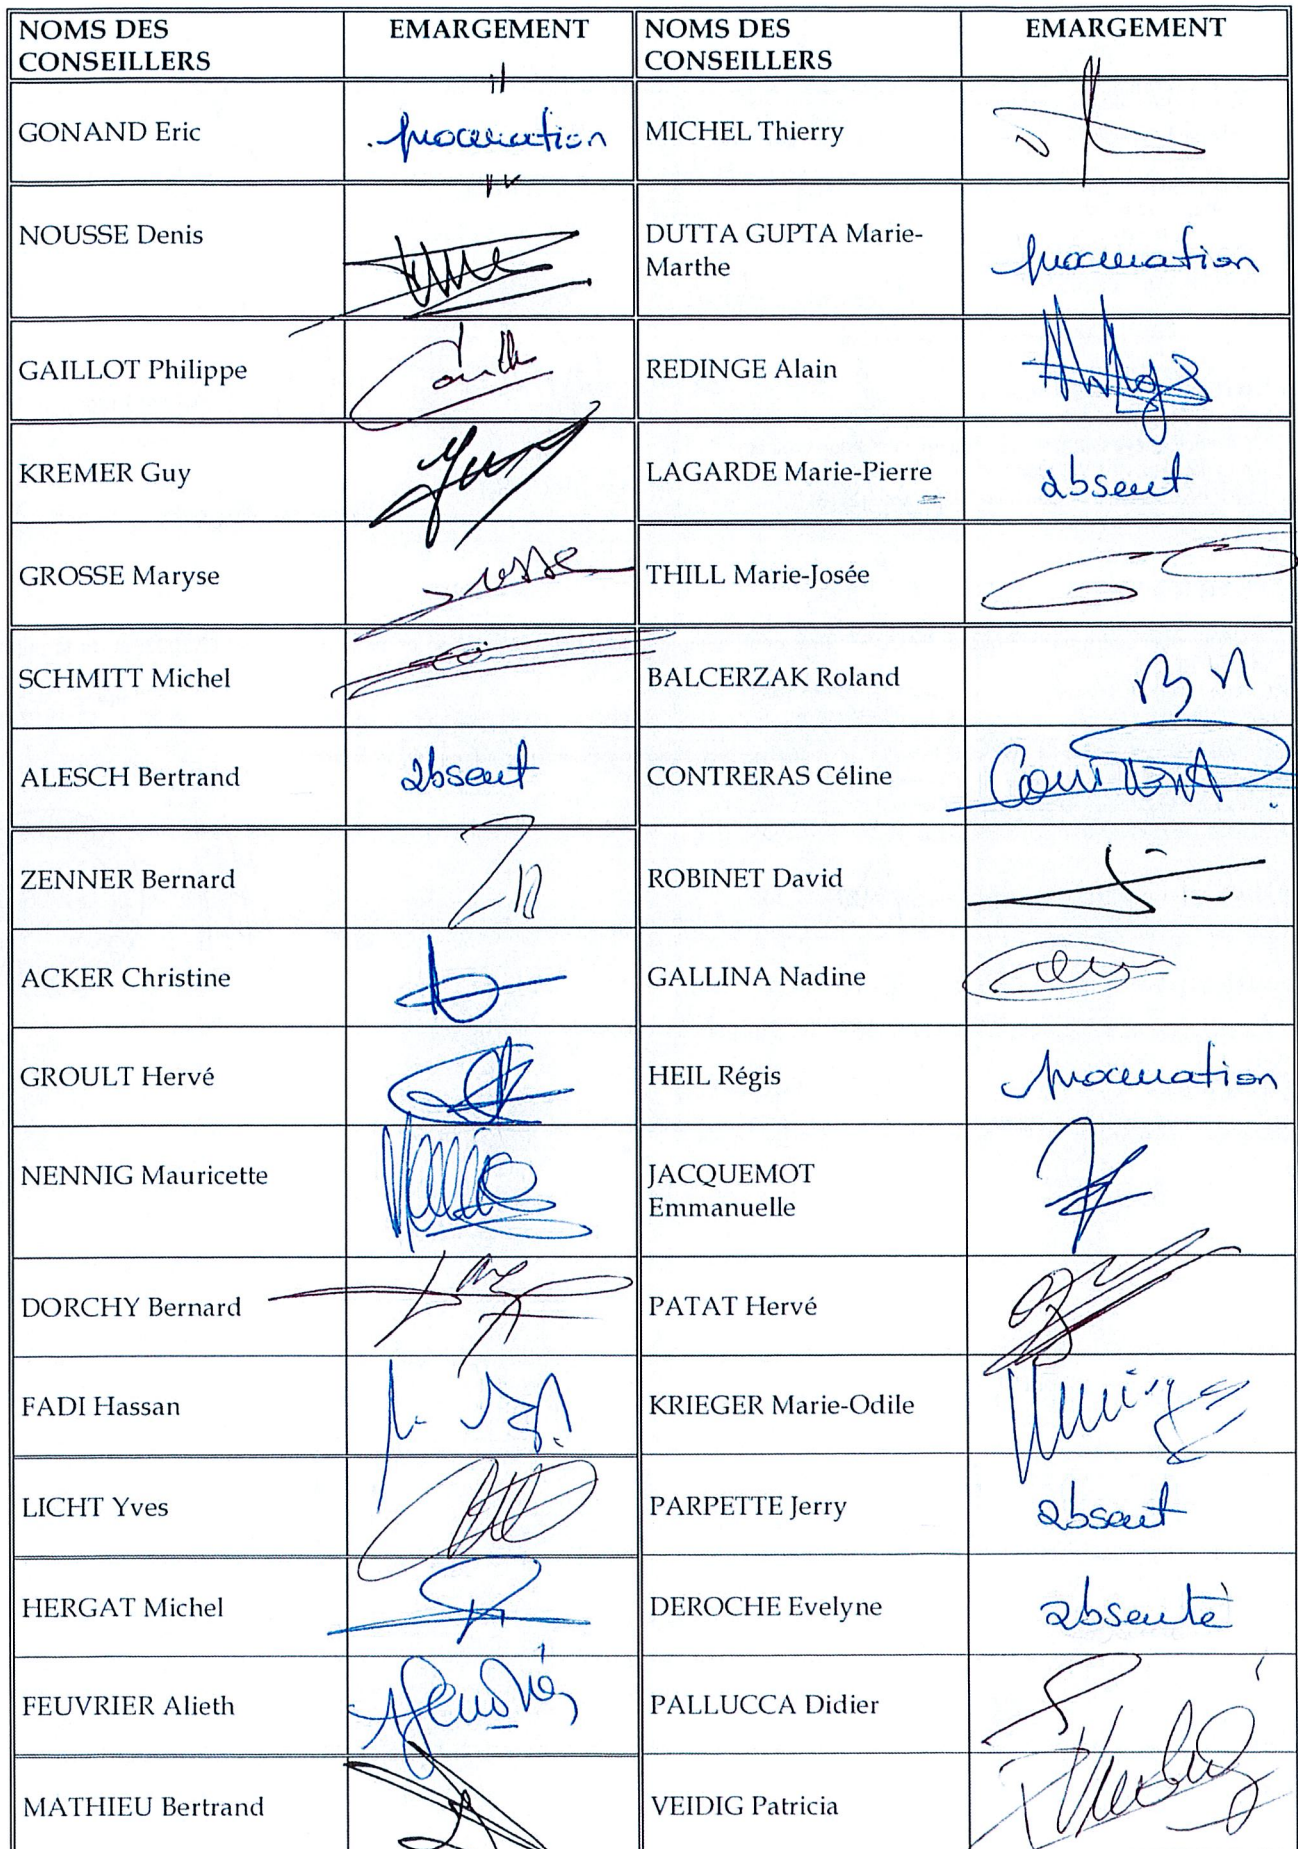 NOMS DES CONSEILLERS EMARGEMENT NOMS DES CONSEILLERS EMARGEMENT
GONAND Eric procuration MICHEL Thierry
NOUSSE Denis DUTTA GUPTA Marie-Marthe procuration
GAILLOT Philippe REDINGE Alain
KREMER Guy LAGARDE Marie-Pierre absent
GROSSE Maryse THILL Marie-Josée
SCHMITT Michel BALCERZAK Roland
ALESCH Bertrand absent CONTRERAS Céline
ZENNER Bernard ROBINET David
ACKER Christine GALLINA Nadine
GROULT Hervé HEIL Régis procuration
NENNIG Mauricette JACQUEMOT Emmanuelle
DORCHY Bernard PATAT Hervé
FADI Hassan KRIEGER Marie-Odile
LICHT Yves PARPETTE Jerry absent
HERGAT Michel DEROCHE Evelyne absente
FEUVRIER Alieth PALLUCCA Didier
MATHIEU Bertrand VEIDIG Patricia